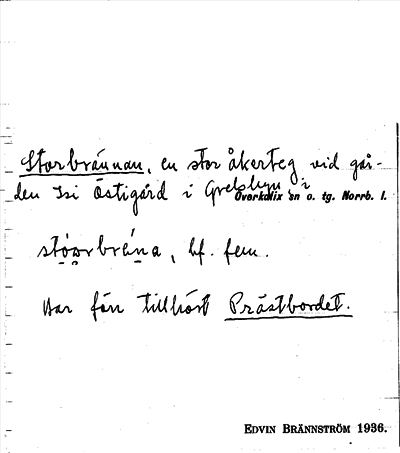 Storbrännan, en stor åkerteg vid går-
den Isi Östigård i Grelsbyn i
Överkalix sn o. tg. Norrb. l.
bf. fem.
Har förr tillhört Prästbordet.
EDVIN BRÄNNSTRÖM 1936.